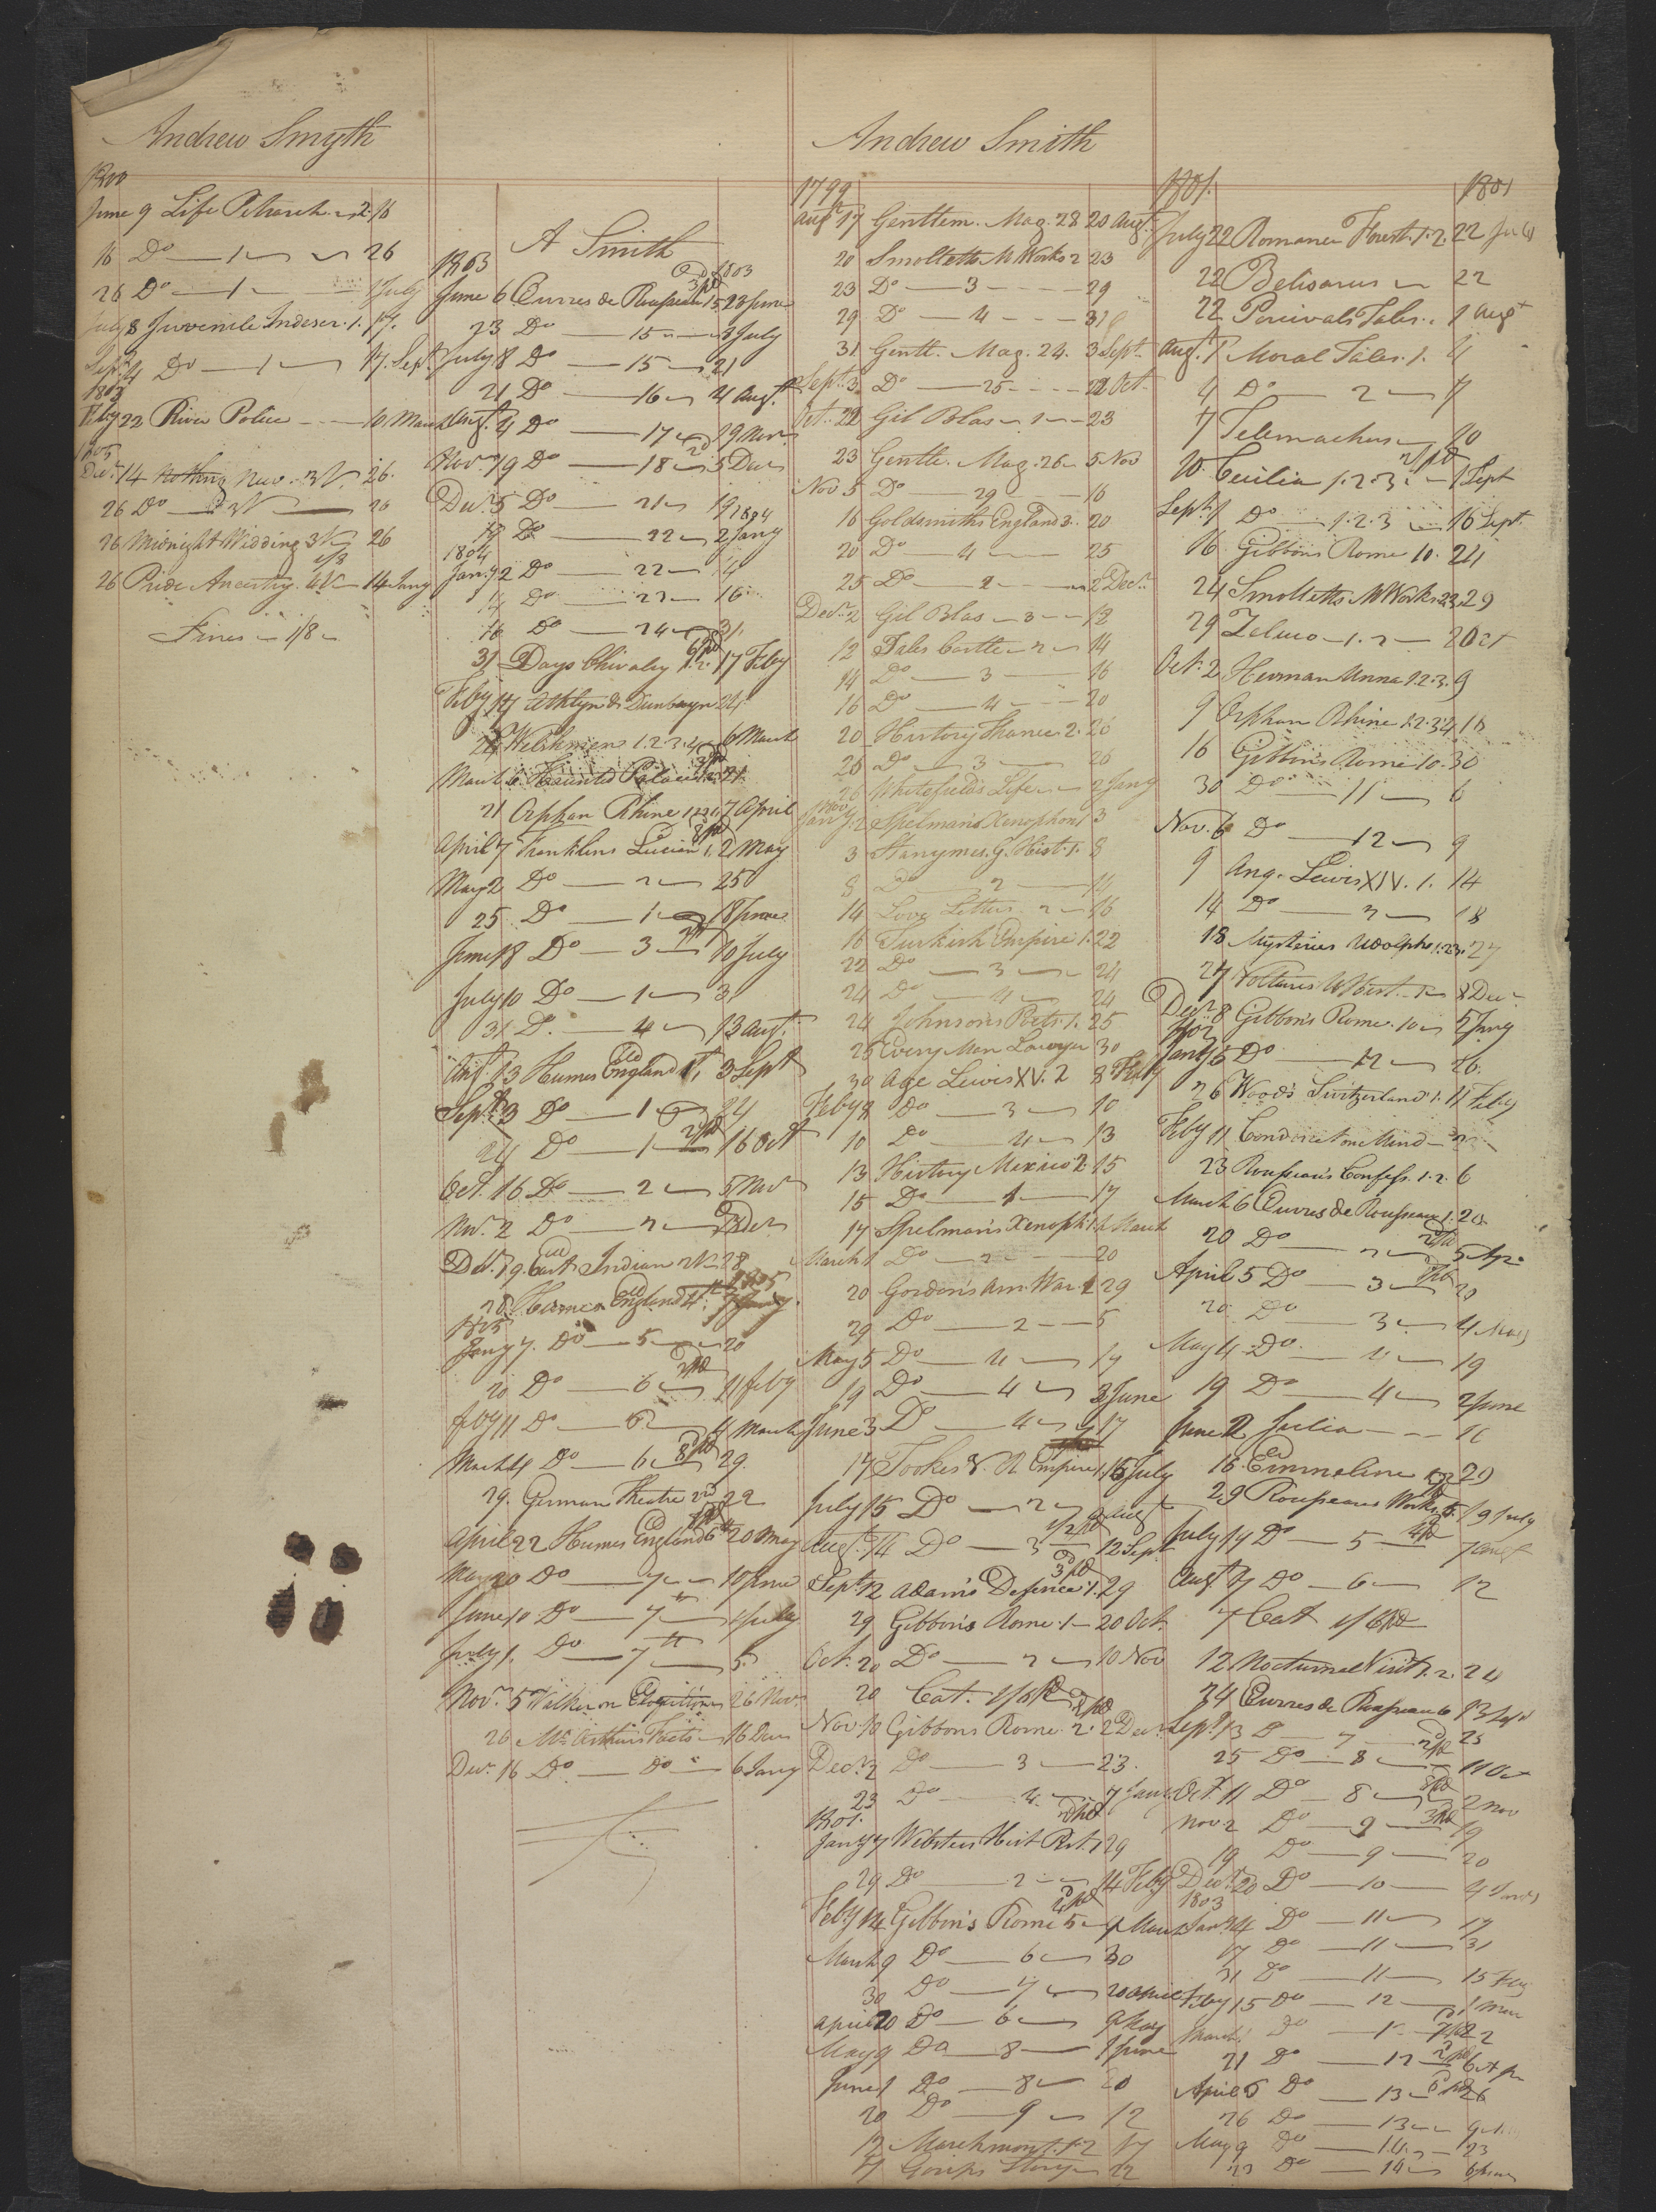 Andrew Smyth
1800
June 9 Life Petrarch 2 16
16 Do 1 26
26 Do 1 July
July 8 Juvenile Indeser 1. 17.
Sept. 4 Do 1 17. Sept.
1803
Feby 22 River Police 10 March
1805
Decr. 14 Nothing New 3 V. 26.
26 Do 3V 26
26 Midnight Wedding 3V 26
26 Pride Ancestry 4V 14 Jany
Fines 1/8
A Smith
1803 1803
June 6 Œuvres de Rousseau 15 23 June
23 Do 15 8 July
July 8 Do 15 21
21 Do 16 4 Augt.
Augt. 4 Do 17 19 Novr
Novr. 19 Do 18 5 Decr
Decr. 5 Do 21 19
1804
19 Do 22 2 Jany
1804
Jany 2 Do 22 14
14 Do 23 16
16 Do 24 31
31 Days Chivalry 1.2. 17 Feby
Feby 17 Athlyn & Dunbayn 24
24 Welshmen 1.2.3.4 6 March
March 6 Haunted Palace 1.2. 21.
21 Orphan Rhine 1.2.3.4 7 April
April 7 Franklins Lucian 1. 2 May
May 2 Do 2 25
25 Do 1 18 June
June 18 Do 3 10 July
July 10 Do 1 31
31 D. 4 13 Augt.
Augt. 13 Humes England 1st, 3 Sept
Sept. 3 Do 1 24
24 Do 1 16 Oct
Oct. 16 Do 2 5 Nov
Nov. 2 Do 2 Decr
Dec. 19. East Indian 2V 28
1805
28. Humes England 4th. 7 Jany.
1805
Jany 7. Do 5 20
20 Do 6 11 feby
feby 11 Do 6 4 March
March 4 Do 6 29.
29. German Theatre 2nd 22
April 22 Humes England 6th 20 May
May 20 Do 7 10 June
June 10 Do 7 1 July
July 1. Do 7th 5.
Novr. 5 Walker on Elocution 26 Novr
26 Mc.Arthurs Facts 16 Decr
Decr. 16 Do Do 6 Jany
Andrew Smith
1799
Augt. 17 Gentlem. Mag. 28 20 Augt.
20 Smolletts M Works 2 23
23 Do 3 29
29 Do 4 31
31 Gentl. Mag. 24. 3 Sept.
Sept. 3 Do 25 22 Oct.
Oct. 22 Gil Blas 1 23
23 Gentle. Mag. 26 5 Nov
Nov 5 Do 29 16
16 Goldsmiths England 3. 20
20 Do 4 25
25 Do 2 2 Decr.
Decr. 2 Gil Blas 3 12
12 Tales Castle 2 14
14 Do 3 16
16 Do 4 20
20 History France 2. 26
26 Do 3 26
26 Whitefields Life 2 Jany
1800
Jany. 2 Spelman's Xenophon 1 3
3 Stanymes. G. Hist. 1. 8
8 Do 2 14
14 Love Letters 2 16
16 Turkish Empire 1. 22
22 Do 3 24
24 Do 4 24
24 Johnson's Poets 1. 25
25 Every Man Lawyer 30
30 Age Lewis XV. 2 8 Feby
Feby 8 Do 3 10
10 Do 4 13
13 History Mexico 2. 15
15 Do 1 17
17 Spelman's Xenoph. 1. 1 March
March 1 Do 2 20
20 Gordon's Am. War 1 29
29 Do 2 5
May 5 Do 4 19
19 Do 4 3 June
June 3 Do 4 17
17 Tookes V. R Empire 1. 15 July
July 15 Do 2 Augt
Augt. 14 Do 3 12 Sept
Sept. 12 Adam's Defence 1. 29
29 Gibbon's Rome 1 20 Oct.
Oct. 20 Do 2 10 Nov
20 Cat. 1/6 pd
Nov. 10 Gibbons Rome 2. 2 Decr.
Decr. 2 Do 3 23.
23 Do 4 7 Jany
1801.
Jany 7 Websters Hist Pest. 1 29
29 Do 2 14 Feby
Feby 14 Gibbon's Rome 5 9 March
March 9 Do 6 30
30 Do 7 20 April
April 20 Do 6 9 May
May 9 Do 8 1 June
June 1 Do 8 20
20 Do 9 12
12 Marchmont 1.2 17
17 Gossips Story 22
1801. 1801
July 22 Romance Forest. 1.2. 22 July
22 Belisarius 22
22 Percivals Tales 1 Augt
Augt. 1 Moral Tales. 1. 4
4 Do 2 7
7 Telemachus 20
20 Cecilia 1.2.3. 1 Sept
Sept. 1 Do 1.2.3 16 Sept.
16 Gibbons Rome 10. 24
24 Smolletts M Works 2.3. 29
29 Zeluco 1.2 2 Oct
Oct. 2 Herman Unna 1.2.3. 9
9 Orphan Rhine 1.2.3.4 16
16 Gibbins Rome 10. 30
30 Do 11 6
Nov. 6 Do 12 9
9 Ang. Lewis XIV. 1. 14
14 Do 2 18
18 Mysteries Udolpho 1.2.3. 27
27 Voltaires W Hist. 1 8 Decr
Decr. 8 Gibbon's Rome. 10 5 Jany
1802
Jany 5 Do 12 26.
26 Wood's Switzerland 1. 11 Feby
Feby 11 Condorcet on Mind
23 Rousseau's Confess. 1.2. 6
March 6 Œuvres de Rousseau 1. 20
20 Do 2 5 Apr
April 5 Do 3 20
20 Do 3 4 May
May 4 Do 4 19
19 Do 4 2 June
June 2 Julia 16
16. Emmeline 29
29 Rousseaus Works 5. 19 July
July 19 Do 5 7 Augt
Augt 7 Do 6 12
7 Cat 1/6 pd
12 Nocturnal Visit 1.2. 24
24 Œuvres de Rousseau 6 13 Sept
Sept. 13 D 7 25
25 Do 8 11 Oct
Oct. 11 Do 8 2 Nov
Nov 2 Do 9 19
19 Do 9 20
Decr. 20 Do 10 4 Jany
1803
Jany. 4 Do 11 17
17 Do 11 31
31 Do 11 15 Feby
Feby 15 Do 12 1 Mar
March 1 Do 22
21 Do 12 6 Apr
April 6 Do 13 26
26 Do 13 9
May 9 Do 14 23
23 Do 14 6 June